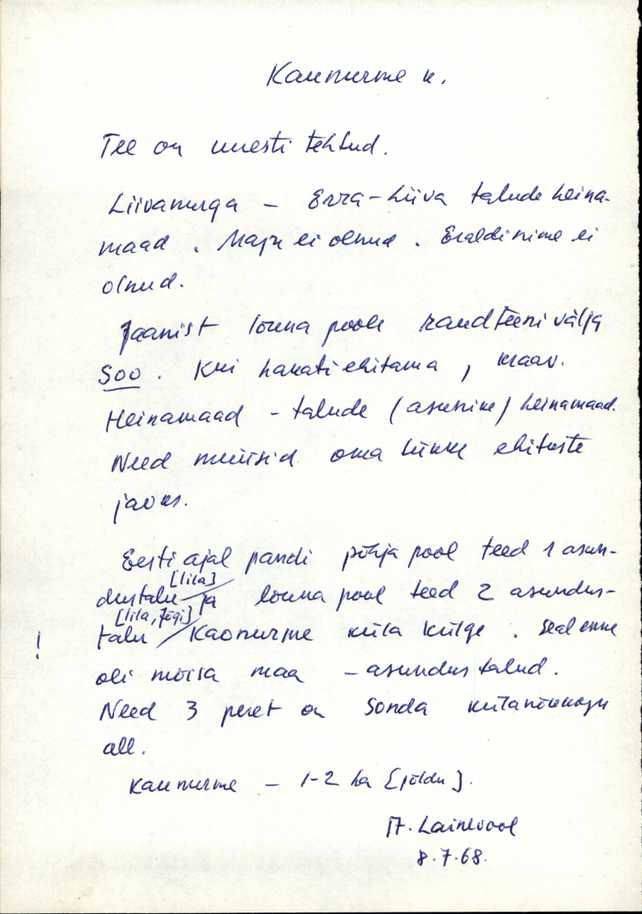 Kaunurme k.
Tee on uuesti tehtud.
Liivanurga – Erra-Liiva talude heina-
maad. Maju ei olnud. Eraldi nime ei
olnud.
Jaanist lõuna poole raudteeni välja
Soo. Kui hakati ehitama, kraav.
Heinamaad – talude (asunike) heinamaad.
Need müüsid oma tükke ehituste
jaoks.
Eesti ajal pandi põhja pool teed 1 asun-
[lila]
dustalu ja lõuna pool teed 2 asundus-
[lila, Jõgi]
! talu Kaonurme küla külge. Seal enne
oli mõisa maa – asundustalud.
Need 3 peret on Sonda külanõukogu
all.
Kaunurme – 1-2 ha [põldu].
8.7.68.